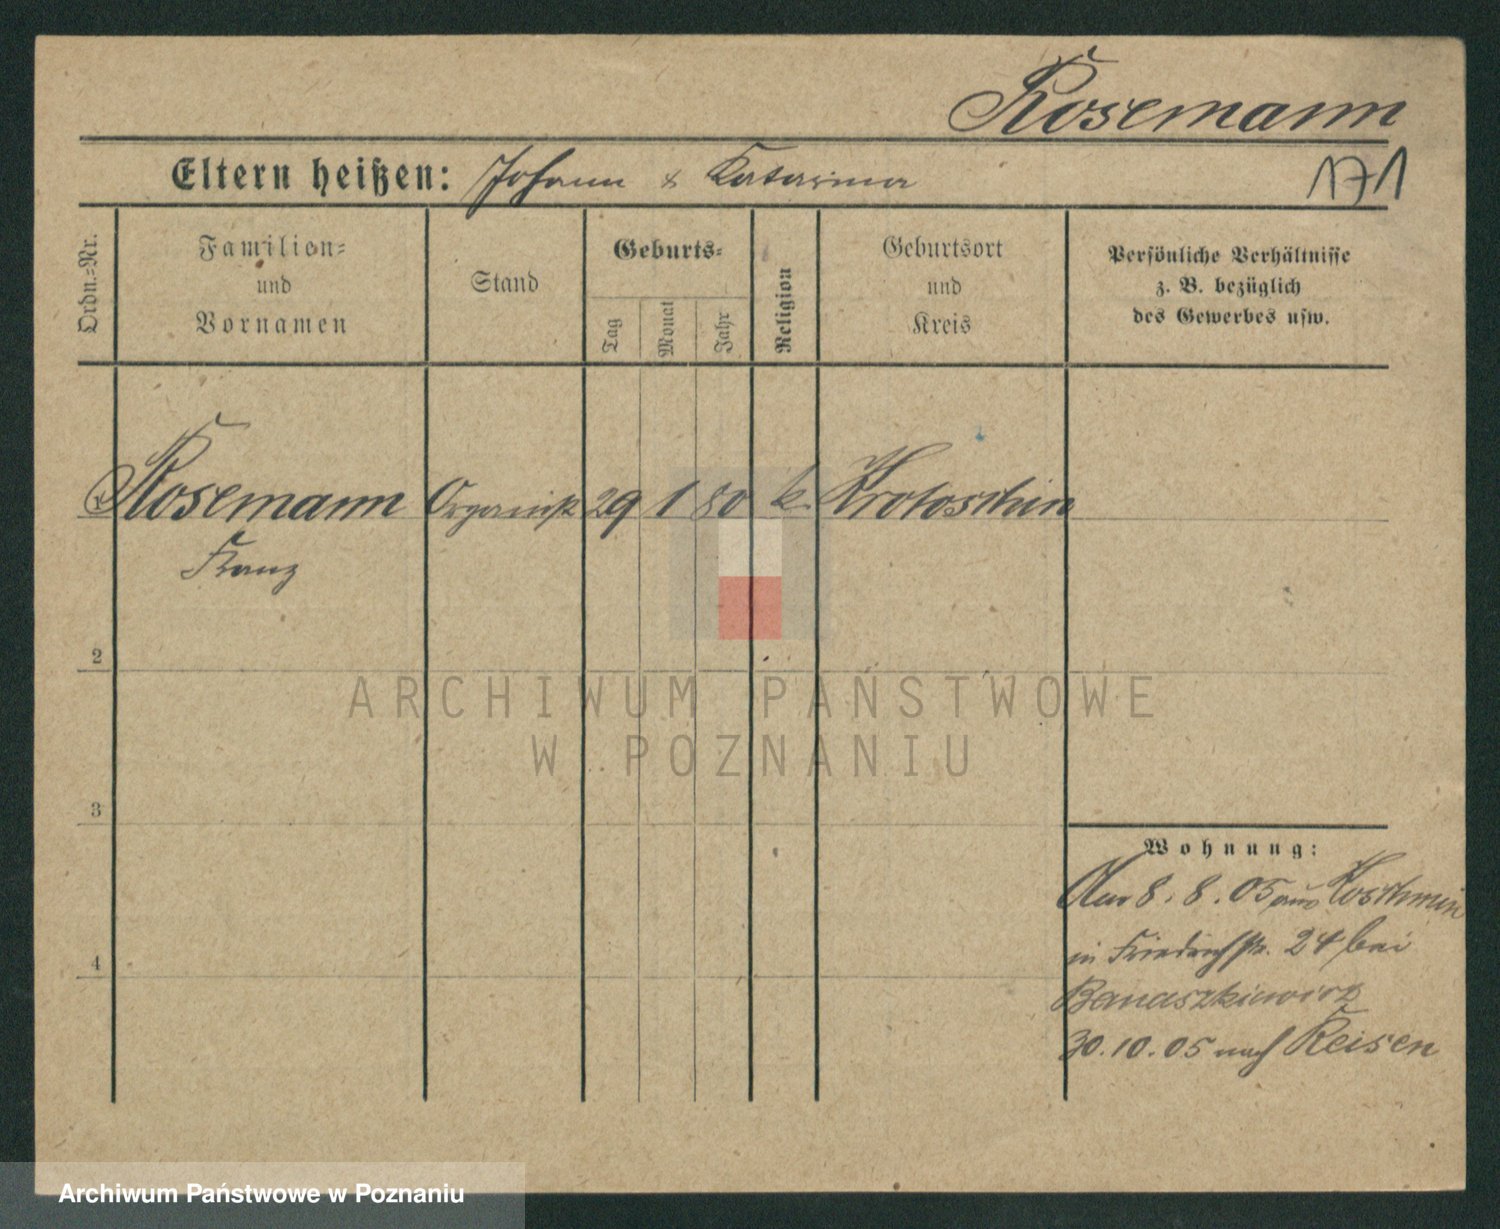 Rosemann
Eltern heißen: Johann & Katarina
171
Ordn.=Nr.
Familien=
und
Vornamen
Stand
Geburts=
Tag
Monat
Jahr
Religion
Geburtsort
und
Kreis
Persönliche Verhältnisse
z. B. bezüglich
des Gewerbes usw.
Rosemann Organist 29 1 80 k. Krotoschin
Franz
2
ARCHIWUM PAŃSTWOWE
W POZNANIU
3
Wohnung:
Am 8. 8. 05 aus Koschmin
in Friedrichstr. 24 bei
4
Banaszkiewicz
30. 10. 05 nach Reisen
Archiwum Państwowe w Poznaniu